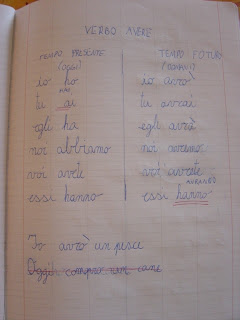 VERBO AVERE
TEMPO PRESENTE TEMPO FUTURO
(OGGI) (DOMANI)
io ho io avrò
HAI
tu ai tu avrai
egli ha egli avrà
noi abbiamo noi avremo
voi avete voi avrete
AVRANNO
essi hanno essi hanno
Io avrò un pesce
Oggi compro un cane